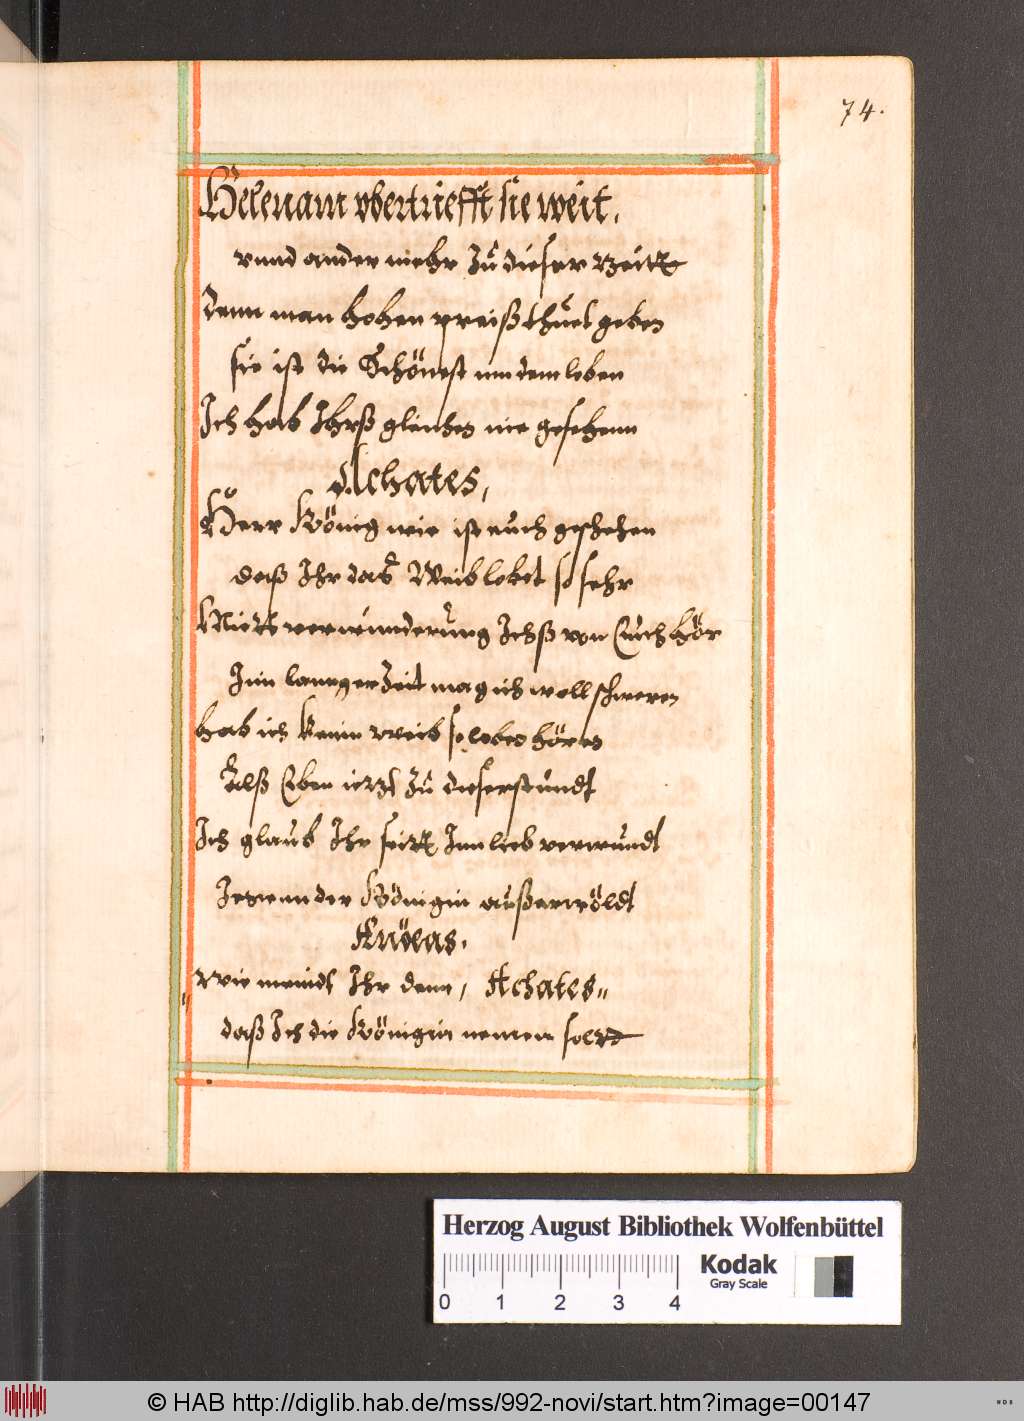 74.
Helenam vbertriefft sie weit.
vnnd ander mehr Zu dieser Zeitt
Dem man hohen preiß thuet geben
sie ist die Schönest am dem leben
Ich hab Ihrß gleichen nie gesehenn
Achates,
Herr König wie ist euch geschehen
daß Ihr das Weib lobet so sehr
Mitt verwunderung Ichß von Euch hör
Inn lannger Zeit mag ich woll schweren
hab ich kenin weib so loben hören
Alß Eben ietzt Zu dieser stundt
Ich glaub Ihr seitt Inn lieb verwundt
Iegenn der Königin außerwöldt
Aneas.
Wie meindt Ihr denn, Achates,,
daß Ich die Königin nemen soltt
Herzog August Bibliothek Wolfenbüttel
Kodak
Gray Scale
0 1 2 3 4
© HAB http://diglib.hab.de/mss/992-novi/start.htm?image=00147